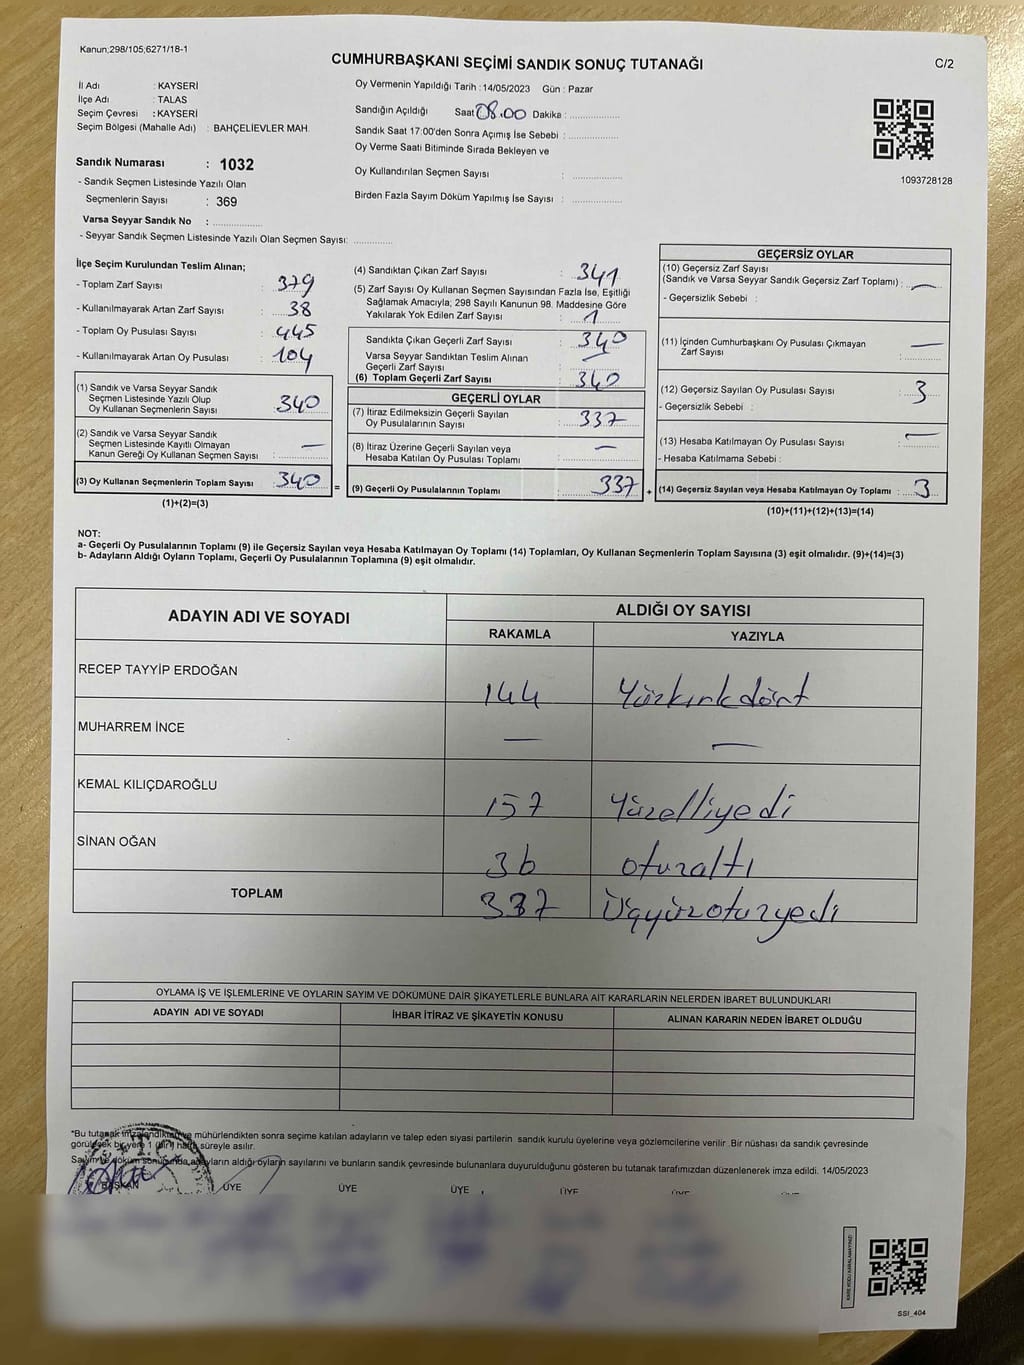 Kanun;298/105;6271/18-1
CUMHURBAŞKANI SEÇİMİ SANDIK SONUÇ TUTANAĞI
C/2
İl Adı : KAYSERİ
İlçe Adı : TALAS
Seçim Çevresi : KAYSERİ
Seçim Bölgesi (Mahalle Adı) : BAHÇELİEVLER MAH.
Oy Vermenin Yapıldığı Tarih : 14/05/2023 Gün : Pazar
Sandığın Açıldığı Saat 08.00 Dakika :
Sandık Saat 17:00'den Sonra Açımış İse Sebebi :
Oy Verme Saati Bitiminde Sırada Bekleyen ve
Oy Kullandırılan Seçmen Sayısı :
Birden Fazla Sayım Döküm Yapılmış İse Sayısı :
1093728128
Sandık Numarası : 1032
- Sandık Seçmen Listesinde Yazılı Olan
Seçmenlerin Sayısı : 369
Varsa Seyyar Sandık No :
- Seyyar Sandık Seçmen Listesinde Yazılı Olan Seçmen Sayısı:
İlçe Seçim Kurulundan Teslim Alınan;
- Toplam Zarf Sayısı : 379
- Kullanılmayarak Artan Zarf Sayısı : 38
- Toplam Oy Pusulası Sayısı : 445
- Kullanılmayarak Artan Oy Pusulası : 104
(1) Sandık ve Varsa Seyyar Sandık
Seçmen Listesinde Yazılı Olup
Oy Kullanan Seçmenlerin Sayısı : 340
(2) Sandık ve Varsa Seyyar Sandık
Seçmen Listesinde Kayıtlı Olmayan
Kanun Gereği Oy Kullanan Seçmen Sayısı : —
(3) Oy Kullanan Seçmenlerin Toplam Sayısı : 340
(1)+(2)=(3)
=
(4) Sandıktan Çıkan Zarf Sayısı : 341
(5) Zarf Sayısı Oy Kullanan Seçmen Sayısından Fazla İse, Eşitliği
Sağlamak Amacıyla; 298 Sayılı Kanunun 98. Maddesine Göre
Yakılarak Yok Edilen Zarf Sayısı : 1
Sandıkta Çıkan Geçerli Zarf Sayısı : 340
Varsa Seyyar Sandıktan Teslim Alınan
Geçerli Zarf Sayısı : —
(6) Toplam Geçerli Zarf Sayısı : 340
GEÇERLİ OYLAR
(7) İtiraz Edilmeksizin Geçerli Sayılan
Oy Pusulalarının Sayısı : 337
(8) İtiraz Üzerine Geçerli Sayılan veya
Hesaba Katılan Oy Pusulası Toplamı : —
(9) Geçerli Oy Pusulalarının Toplamı : 337
+
GEÇERSİZ OYLAR
(10) Geçersiz Zarf Sayısı
(Sandık ve Varsa Seyyar Sandık Geçersiz Zarf Toplamı) : —
- Geçersizlik Sebebi :
(11) İçinden Cumhurbaşkanı Oy Pusulası Çıkmayan
Zarf Sayısı : —
(12) Geçersiz Sayılan Oy Pusulası Sayısı : 3
- Geçersizlik Sebebi :
(13) Hesaba Katılmayan Oy Pusulası Sayısı : —
- Hesaba Katılmama Sebebi :
(14) Geçersiz Sayılan veya Hesaba Katılmayan Oy Toplamı : 3
(10)+(11)+(12)+(13)=(14)
NOT:
a- Geçerli Oy Pusulalarının Toplamı (9) ile Geçersiz Sayılan veya Hesaba Katılmayan Oy Toplamı (14) Toplamları, Oy Kullanan Seçmenlerin Toplam Sayısına (3) eşit olmalıdır. (9)+(14)=(3)
b- Adayların Aldığı Oyların Toplamı, Geçerli Oy Pusulalarının Toplamına (9) eşit olmalıdır.
ADAYIN ADI VE SOYADI
ALDIĞI OY SAYISI
RAKAMLA YAZIYLA
RECEP TAYYİP ERDOĞAN 144 Yüzkırkdört
MUHARREM İNCE — —
KEMAL KILIÇDAROĞLU 157 Yüzelliyedi
SİNAN OĞAN 36 otuzaltı
TOPLAM 337 Üçyüzotuzyedi
OYLAMA İŞ VE İŞLEMLERİNE VE OYLARIN SAYIM VE DÖKÜMÜNE DAİR ŞİKAYETLERLE BUNLARA AİT KARARLARIN NELERDEN İBARET BULUNDUKLARI
ADAYIN ADI VE SOYADI İHBAR İTİRAZ VE ŞİKAYETİN KONUSU ALINAN KARARIN NEDEN İBARET OLDUĞU
*Bu tutanak imzalandıktan ve mühürlendikten sonra seçime katılan adayların ve talep eden siyasi partilerin sandık kurulu üyelerine veya gözlemcilerine verilir. Bir nüshası da sandık çevresinde
görülecek bir yere 1 (bir) hafta süreyle asılır.
Sayım ve döküm sonucunda adayların aldığı oyların sayılarını ve bunların sandık çevresinde bulunanlara duyurulduğunu gösteren bu tutanak tarafımızdan düzenlenerek imza edildi. 14/05/2023
BAŞKAN ÜYE ÜYE ÜYE ÜYE ÜYE ÜYE
SSI_404